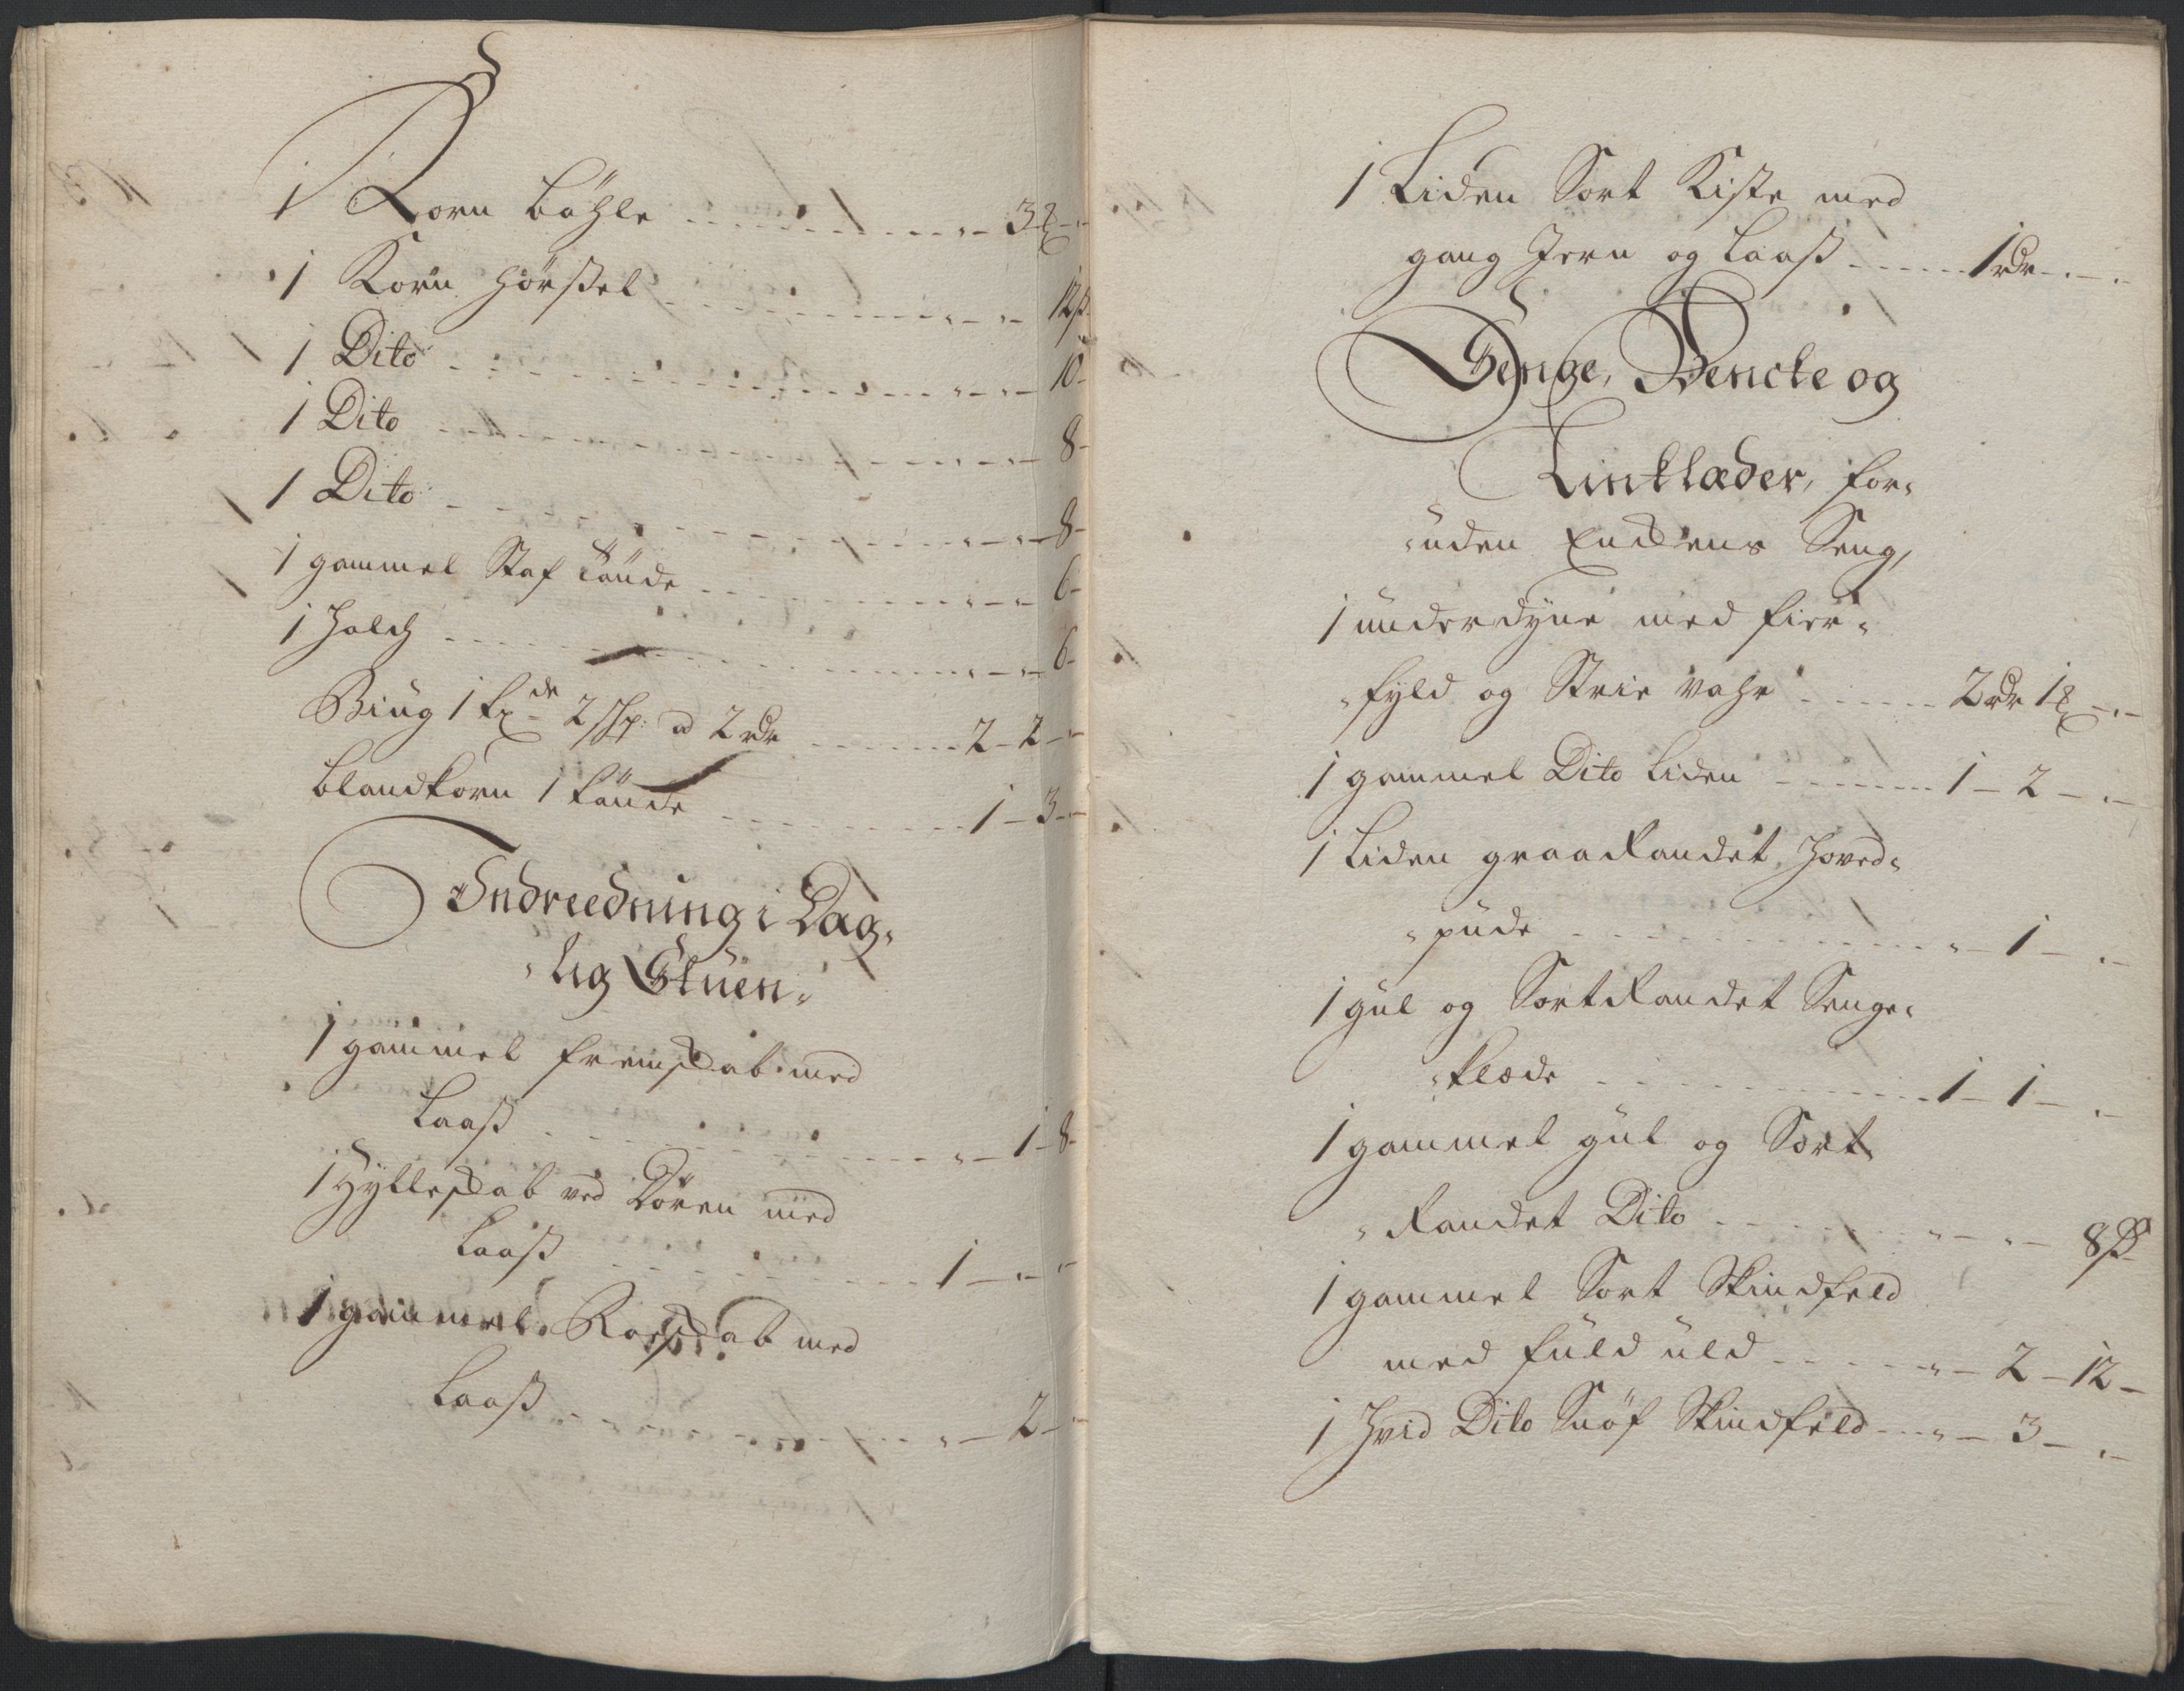 1 Korn bøhle - - - " - 3 ℔ -
1 Korn hørssel - - - " - " - 12 ß
1 Dito - - - " - " - 10 -
1 Dito - - - " - " - 8 -
1 Dito - - - " - " - 8 -
1 gammel Staf tønde - - - " - " - 6 -
1 halch - - - " - " - 6 -
Biug 1 tønde 2 skp: a 2 rdr - - - 2 - 2 -
blandkorn 1 tønde - - - 1 - 3 -
Indreedning i Dag-
-lig Stuen.
1 gammel fremskab med
Laass - - - " - 1 - 8 -
1 Hylleskab ved Dören med
Laass - - - 1 - " - "
1 gammel Roeskab med
Laass - - - " - 2 -
1 Liden Sort Kiste med
gang Jern og Laass - - - 1 rdr - " - "
Senge, Bencke og
Linklæder, for-
-uden Enckens Seng,
1 underdyne med fier-
-fyld og Strie vahr - - - 2 rdr 1 ℔ - " -
1 gammel Dito Liden - - - 1 - 2 - " -
1 Liden graa Randet Hoved-
-pude - - - " - 1 - " -
1 gul og Sort Randet Senge-
-klæde - - - 1 - 1 - " -
1 gammel gul og Sort
-Randet Dito - - - " - " - 8 ß
1 gammel Sort Skindfeld
med fuld uld - - - " - 2 - 12 -
1 Hvid Dito Snöf Skindfeld - - - " - 3 - " -